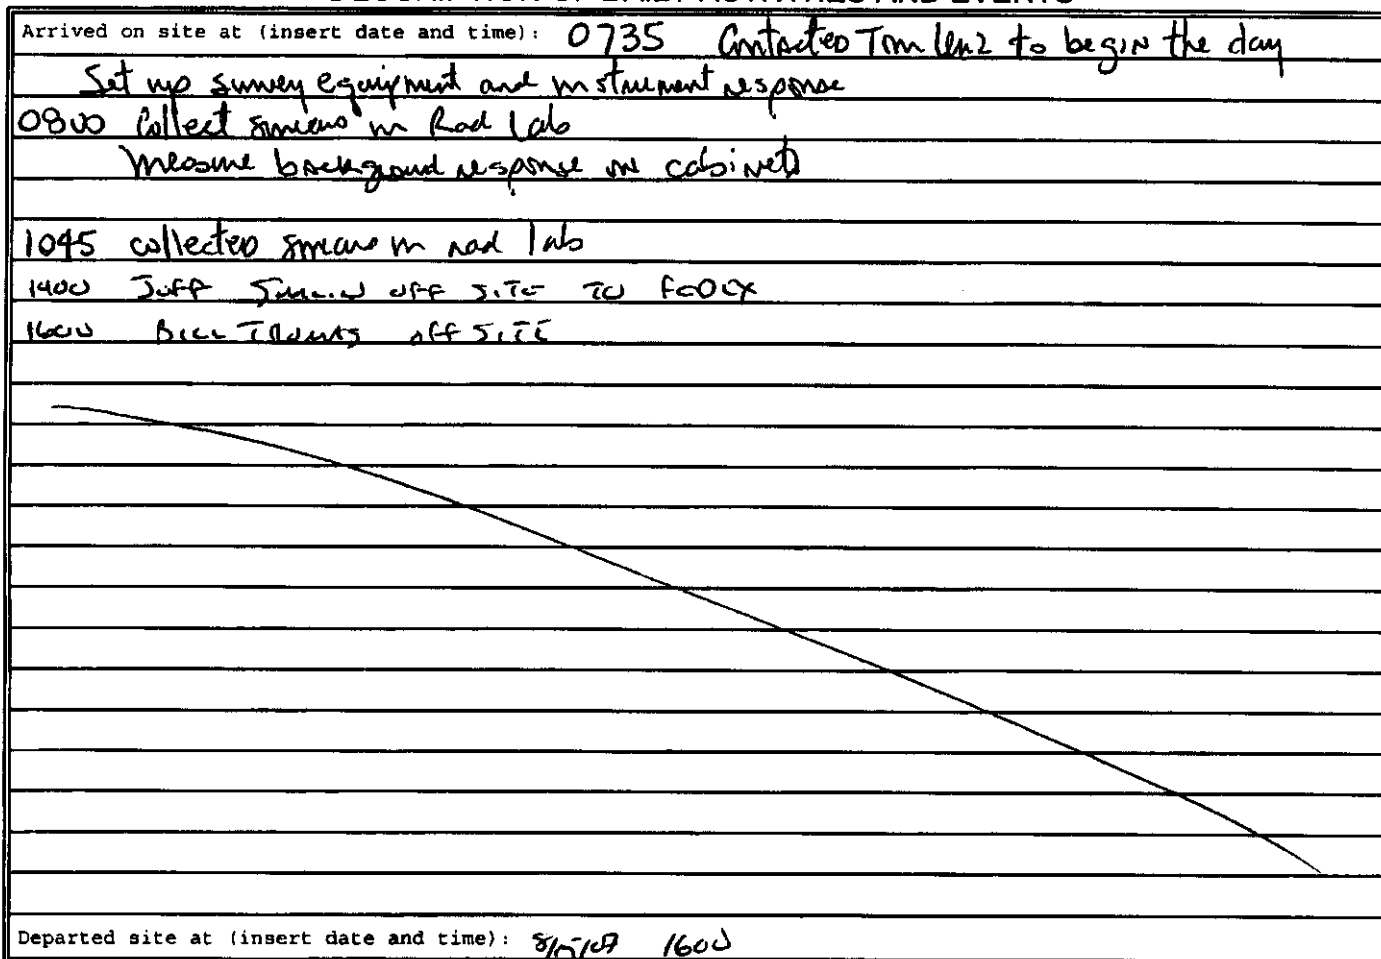 DESCRIPTION OF DAILY ACTIVITIES AND EVENTS
Arrived on site at (insert date and time): 0735 Contacted Tom Lenz to begin the day
Set up survey equipment and instrument response
0800 Collect smears in Rad Lab
Measure background response on cabinets
1045 collected smears in rad lab
1400 Jeff off SITE TO FEDEX
1600 BILL THOMAS off SITE
Departed site at (insert date and time): 1600